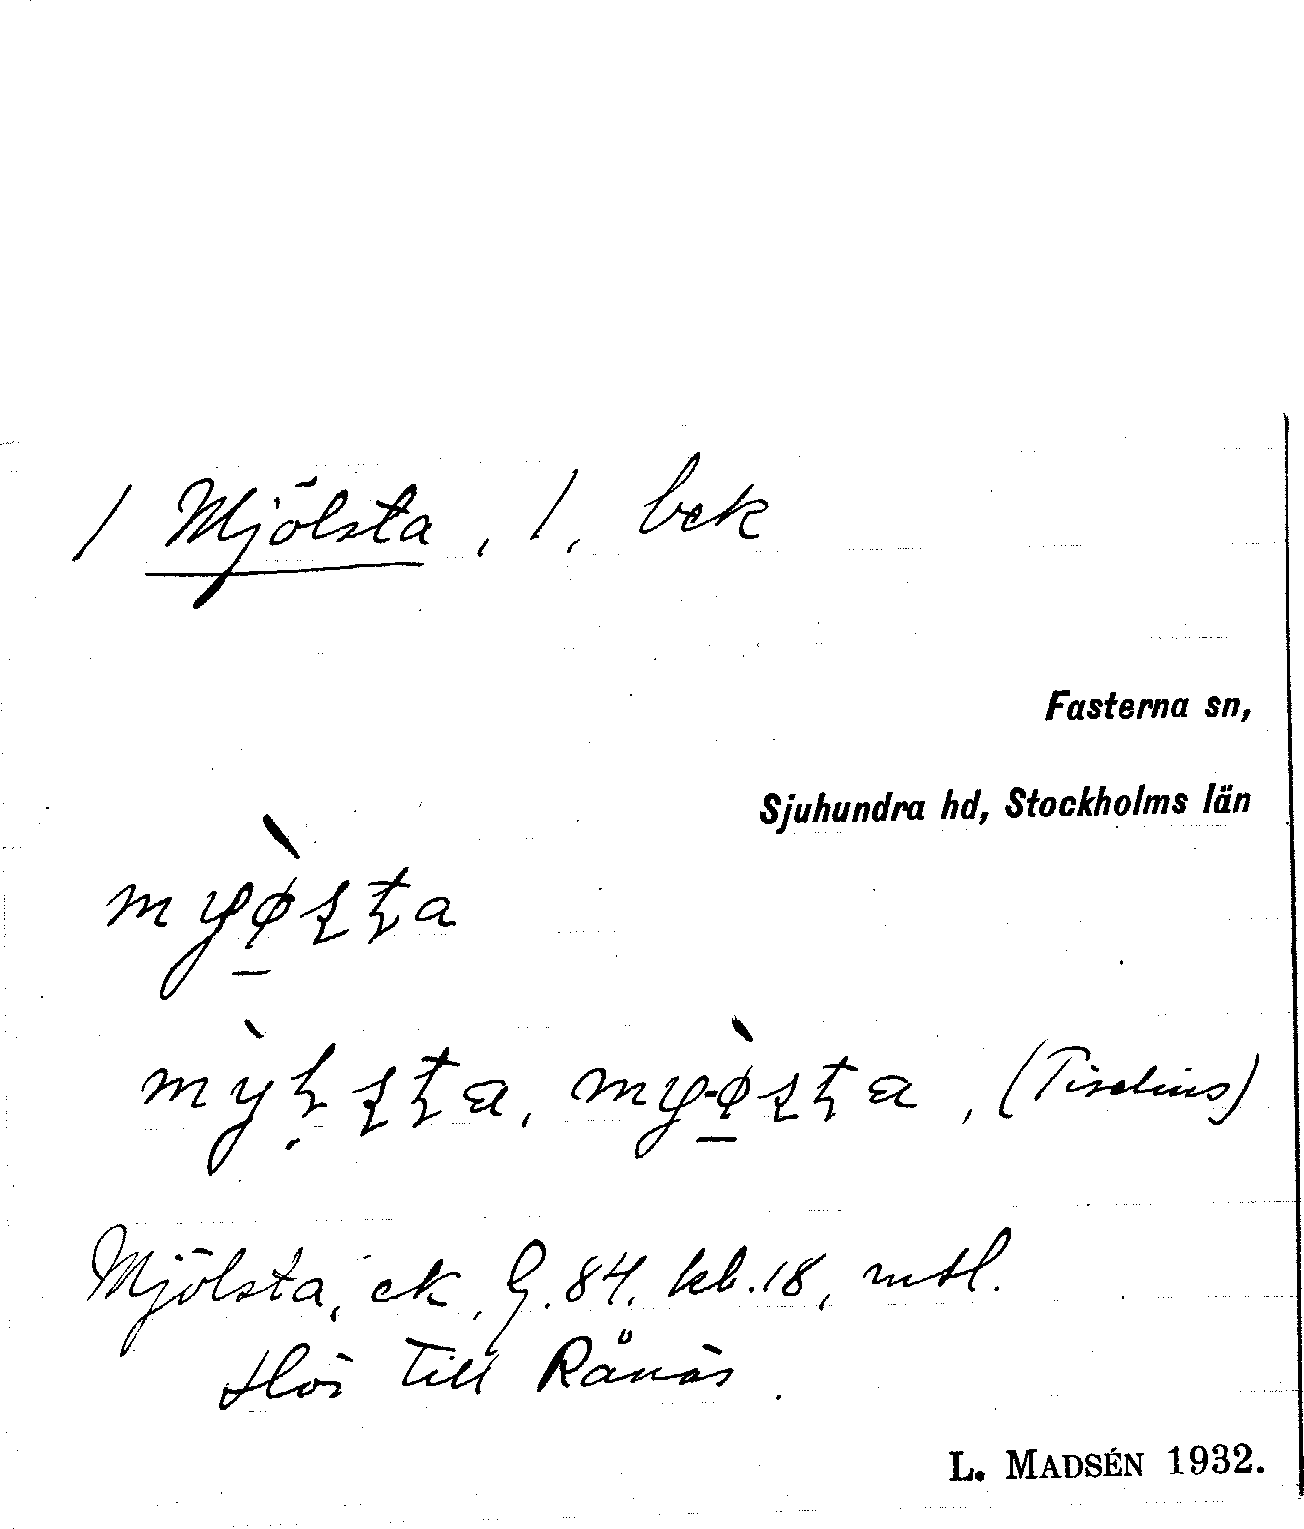 / Mjölsta, /, bek
Fasterna sn,
Sjuhundra hd, Stockholms län
(Tiselius)
Mjölsta, ek, G. 84, kb. 18, mtl.
Hör till Rånäs.
L. MADSÉN 1932.